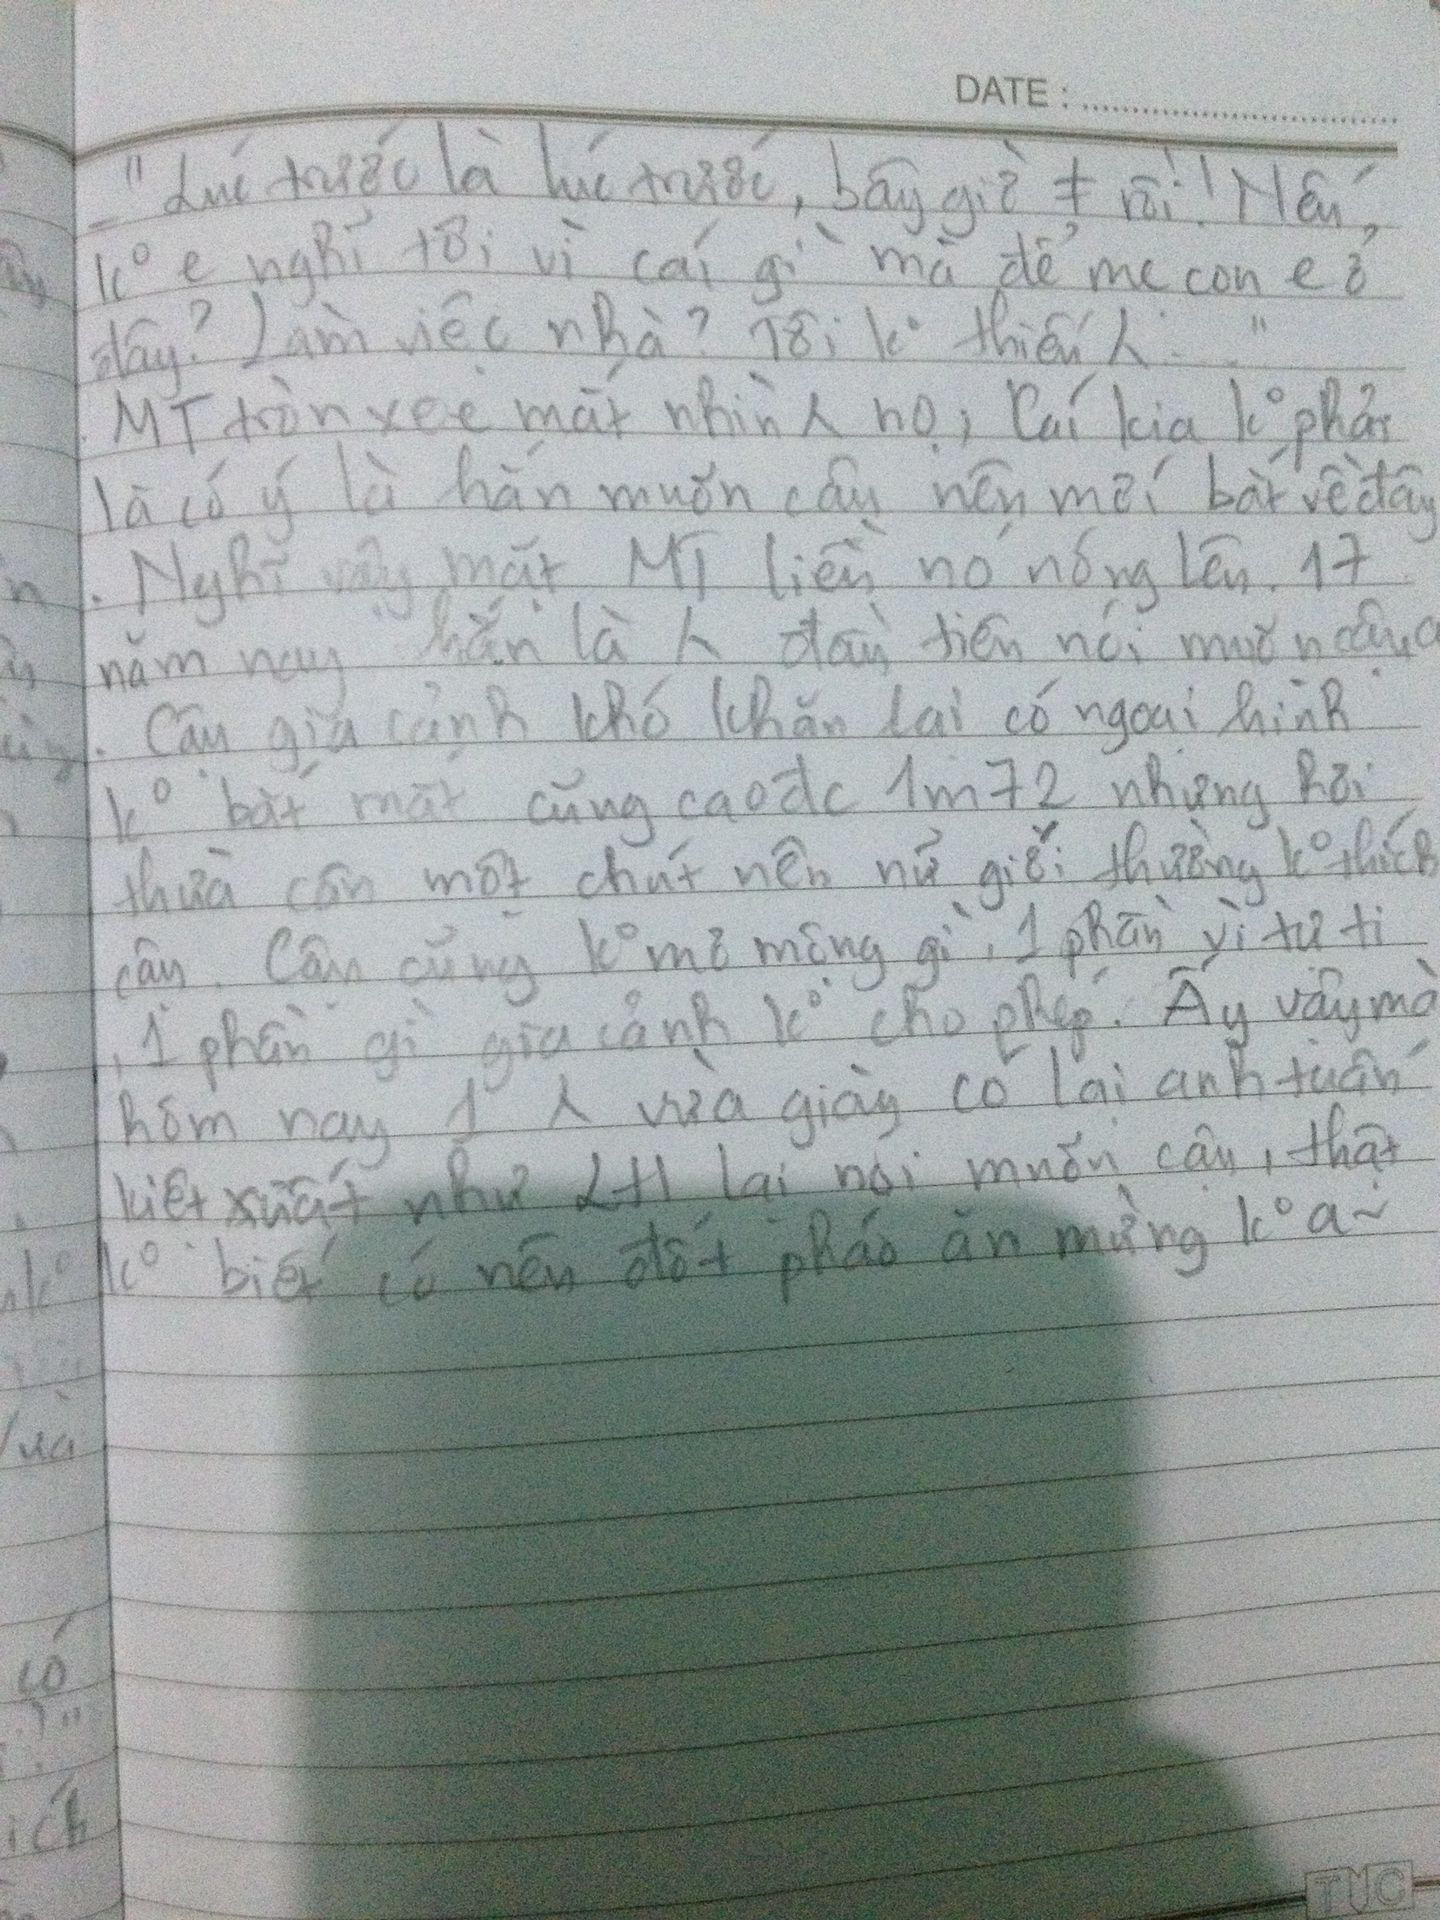 DATE :
_ "Lúc trước là lúc trước, bây giờ ≠ rồi! Nếu
k° e nghĩ tôi vì cái gì mà để mẹ con e ở
đây? Làm việc nhà? Tôi k° thiếu λ..."
. MT tròn xoe mắt nhìn λ nọ, Cái kia k° phải
là có ý là hắn muốn cậu nên mới bắt về đây
. Nghĩ vậy mặt MT liền nó nóng lên. 17
năm nay hắn là λ đầu tiên nói muốn cậu a
. Cậu gia cảnh khó khăn lại có ngoại hình
k° bắt mắt cũng cao đc 1m72 nhưng hơi
thừa cân một chút nên nữ giới thường k° thích
cậu. Cậu cũng k° mơ mộng gì, 1 phần vì tự ti
, 1 phần gì gia cảnh k° cho phép. Ấy vậy mà
hôm nay 1 λ vừa giàu có lại anh tuấn
kiệt xuất như LH lại nói muốn cậu, thật
k° biết có nên đốt pháo ăn mừng k° a~
có
ích
TMC